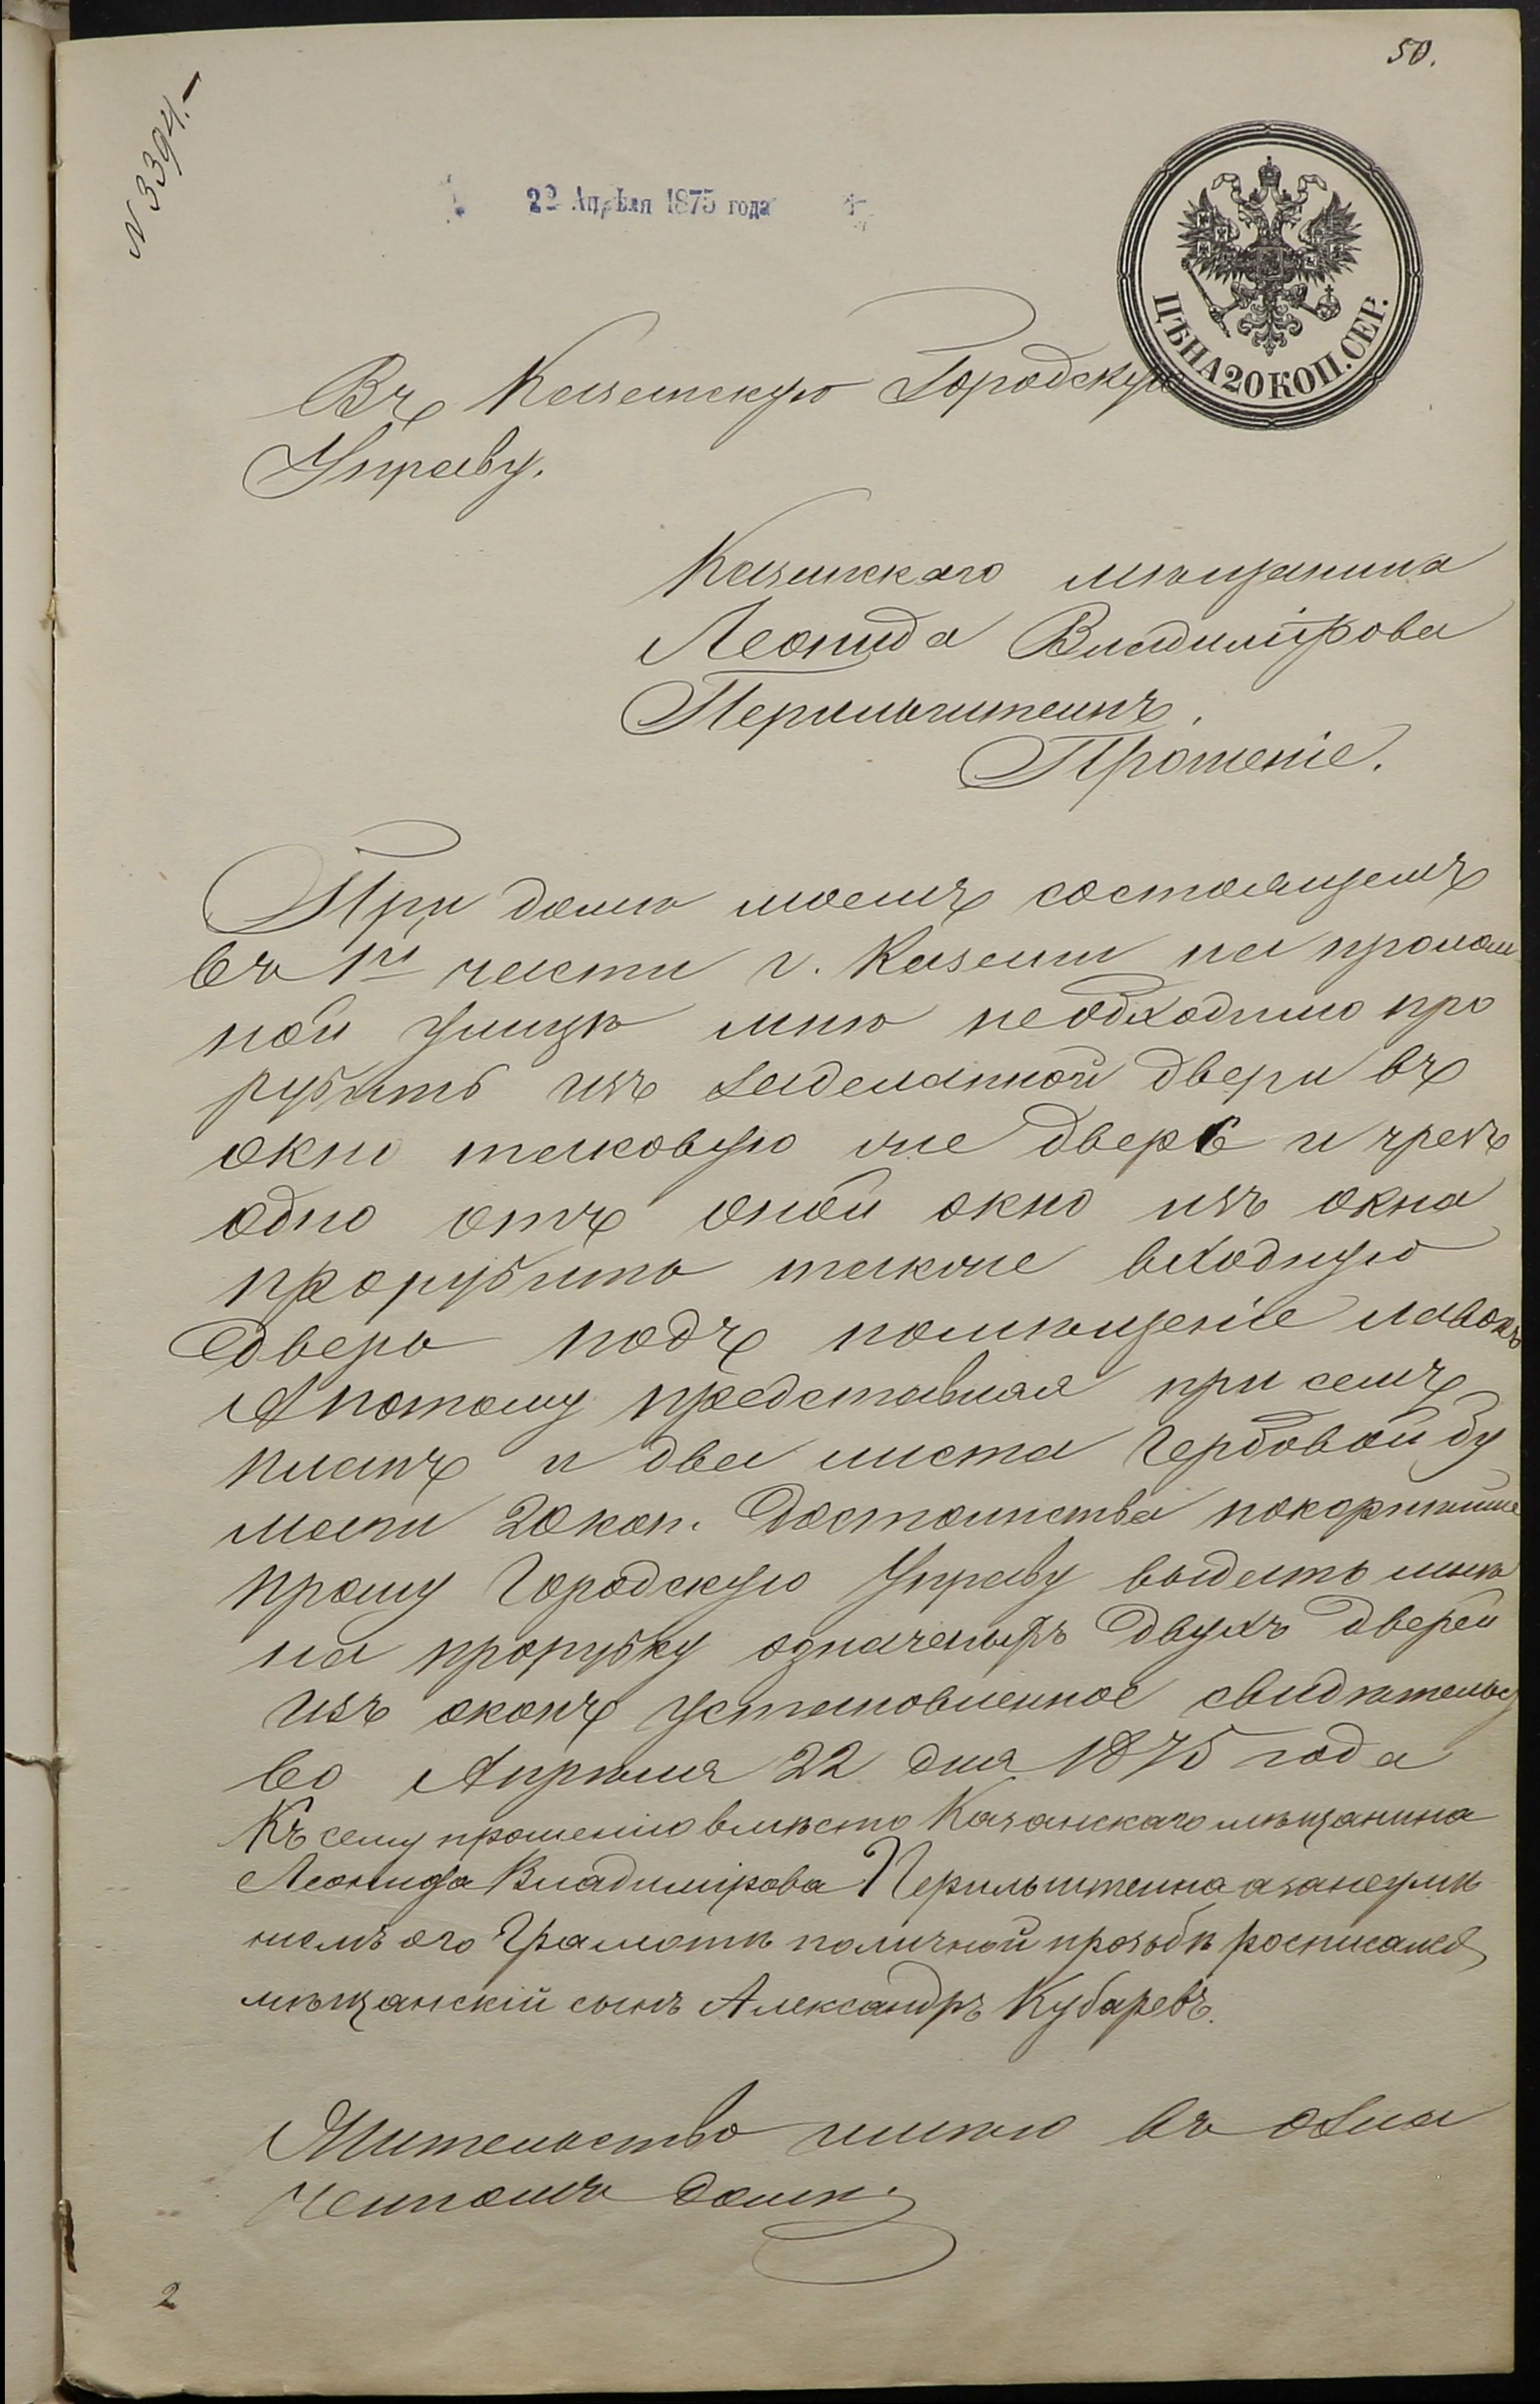 50.
N 3394.-
22 Апрѣля 1875 года
ЦѢНА 20 КОП. СЕР.
Въ Казанскую Городскую
Управу.
Казанскаго мѣщанина
Леонида Владимірова
Перильштеинъ.
Прошеніе.
При домѣ моемъ состоящемъ
въ 1й части г. Казани на пролом
ной улицѣ мнѣ необходимо про
рубить изъ заделанной двери въ
окно таковую же дверь и чрезъ
одно отъ оной окно изъ окна
прорубить также входную
дверь подъ помѣщеніе лавокъ
А потому представляя при семъ
планъ и два листа гербовой бу
маги 20 коп. достоинства покорнѣйше
прошу Городскую Управу выдать мнѣ
на прорубку означеныхъ двухъ дверей
изъ оконъ установленное свидѣтельс
во Апрѣля 22 дня 1875 года
Къ сему прошенію вмѣсто Казанскаго мѣщанина
Леонида Владимірова Перильштеина а занеумѣ
ніемъ его Грамотѣ поличной прозьбѣ росписался
мѣщанскій сынъ Александръ Кубаревъ.
Жительство имѣю въ озна
ченномъ домѣ.
2